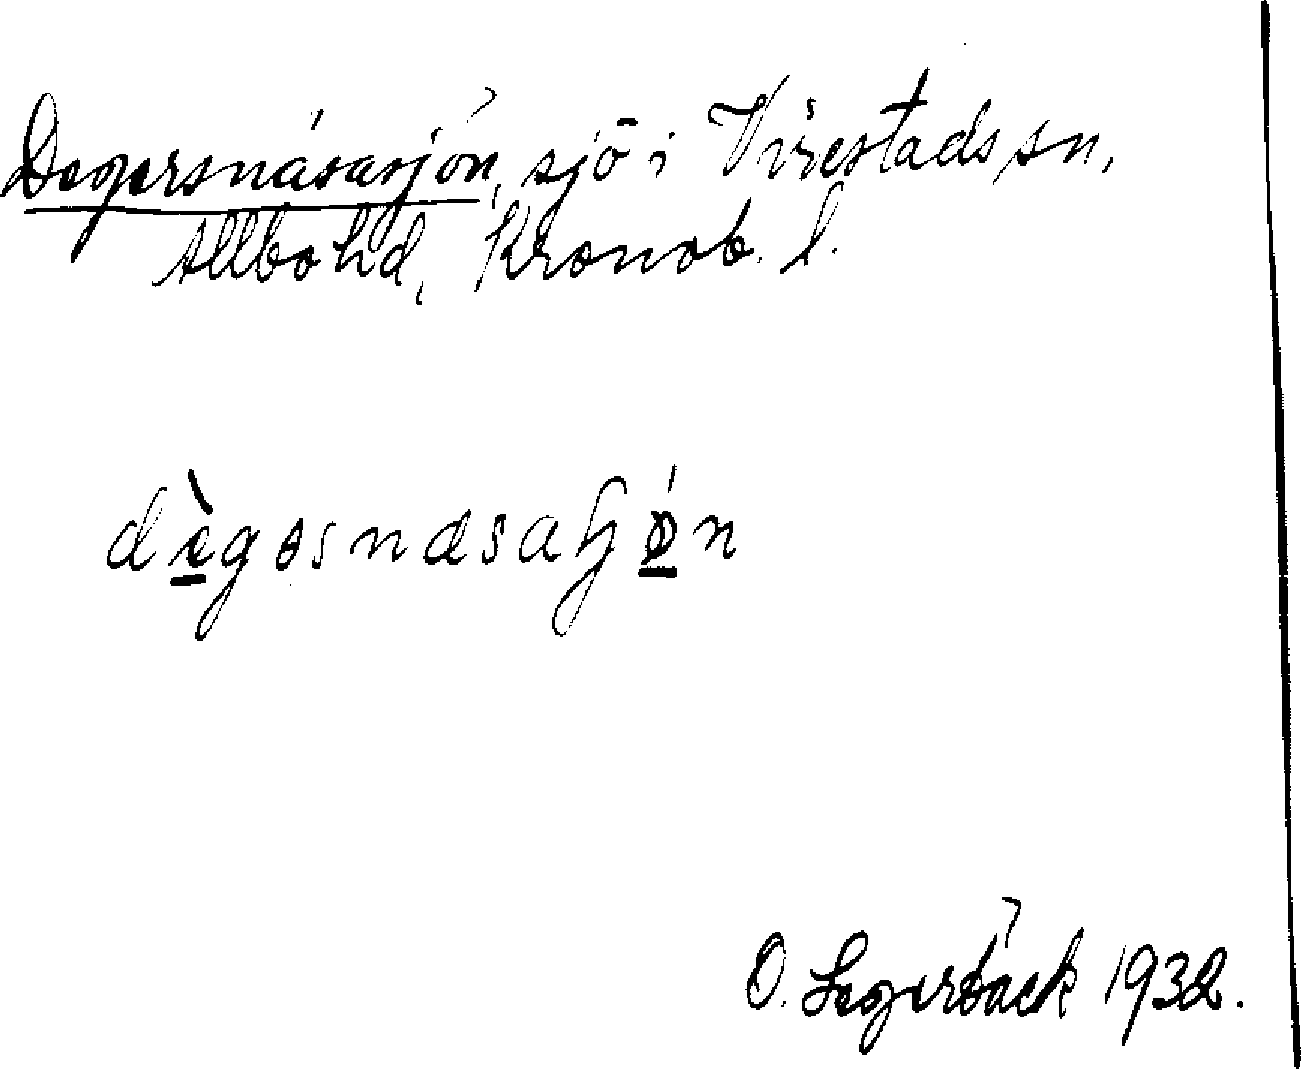 Degersnäsasjön, sjö i Virestads sn,
Allbo hd, Kronob. l.
dègəsnæsaɧǿn
O. Segerbäck 1932.